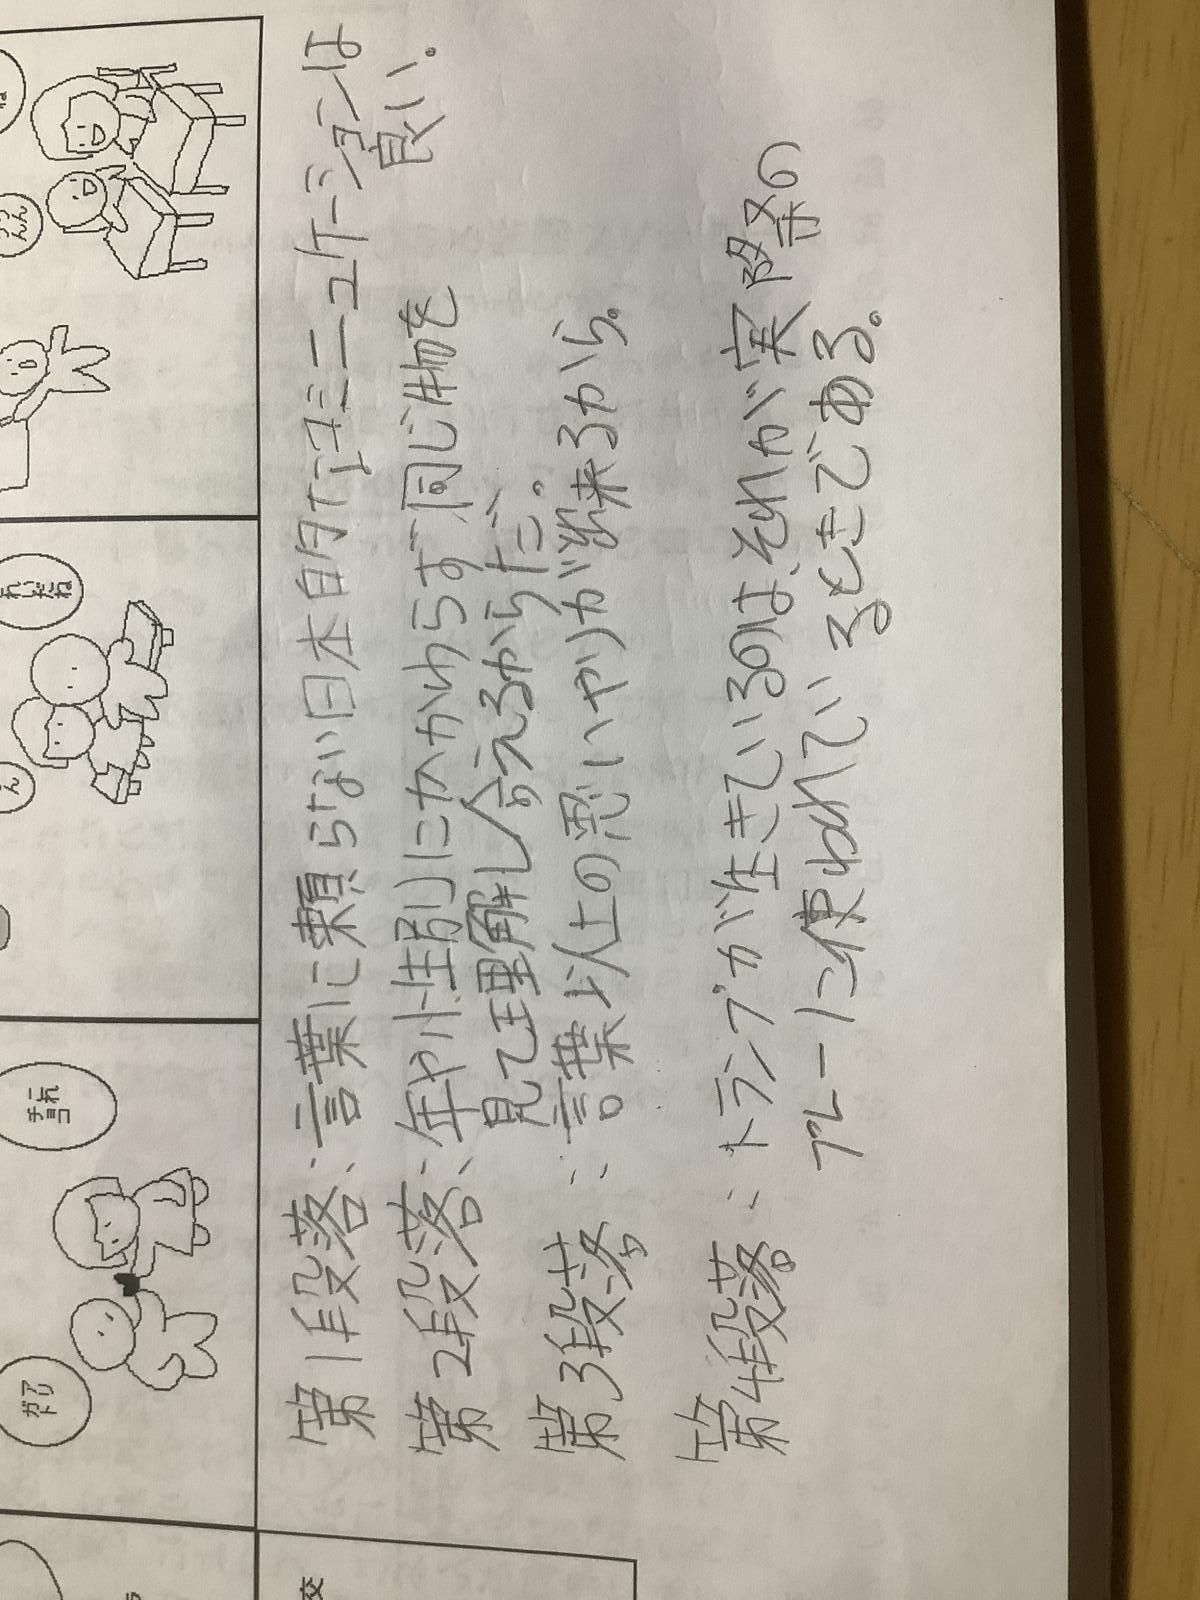 第1段落：言葉に頼らない日本的なコミュニケーションは
良い。
第2段落：年や性別にかかわらず同じ物を
見て理解し合えるからだ。
第3段落：言葉以上の思いやりが出来るから。
第4段落：トランプが生きているのは、それが実際の
プレーに使われているときである。